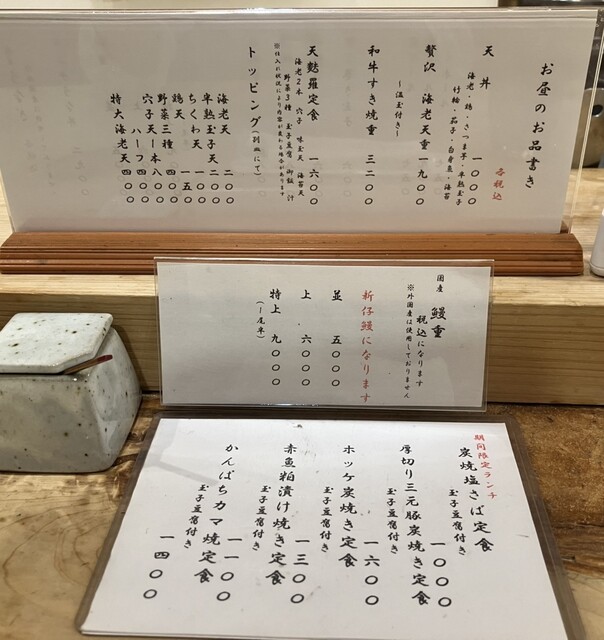 お昼のお品書き
各税込
天丼 一〇〇〇
海老・鶏・さつま芋・半熟玉子
竹輪・茄子・白身魚・海苔
贅沢 海老天重 一九〇〇
〜温玉付き〜
和牛すき焼重 三二〇〇
天麩羅定食 一六〇〇
海老2本 穴子 味玉天 海苔天
野菜3種 玉子豆腐 御飯 汁
※仕入れ状況により内容が変わる場合があります
トッピング(別皿にて)
海老天 二〇〇
半熟玉子天 二〇〇
ちくわ天 一五〇
鶏天 四〇〇
野菜三種 四〇〇
穴子天一本 八〇〇
ハーフ 四〇〇
特大海老天 四〇〇
国産 鰻重
税込になります
※外国産は使用しておりません
新仔鰻になります
並 五〇〇〇
上 六〇〇〇
特上 九〇〇〇
(一尾半)
期間限定ランチ
炭焼塩さば定食 一〇〇〇
玉子豆腐付き
厚切り三元豚炭焼き定食 一六〇〇
玉子豆腐付き
ホッケ炭焼き定食
玉子豆腐付き 一三〇〇
赤魚粕漬け焼き定食
玉子豆腐付き 一一〇〇
かんぱちカマ焼定食
玉子豆腐付き 一四〇〇